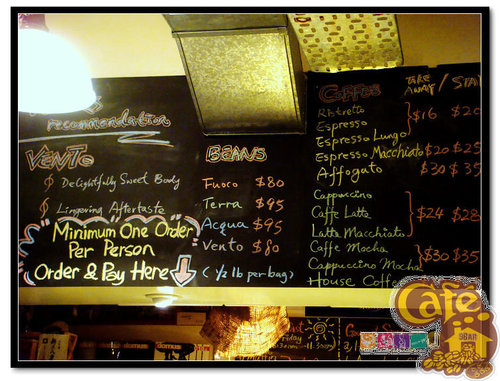 recommendation
VENTO
Delightfully Sweet Body
Lingering Aftertaste
Minimum One Order
Per Person
Order & Pay Here
BEANS
Fuoco $80
Terra $95
Acqua $95
Vento $80
( 1/2 lb per bag )
COFFEE TAKE AWAY / STA
Ristretto
Espresso $16 $20
Espresso Lungo
Espresso Macchiato $20 $25
Affogato $30 $35
Cappuccino
Caffe Latte $24 $28
Latta Macchiato
Caffe Mocha $30 $35
Cappuccino Mocha
House Coffe
Café